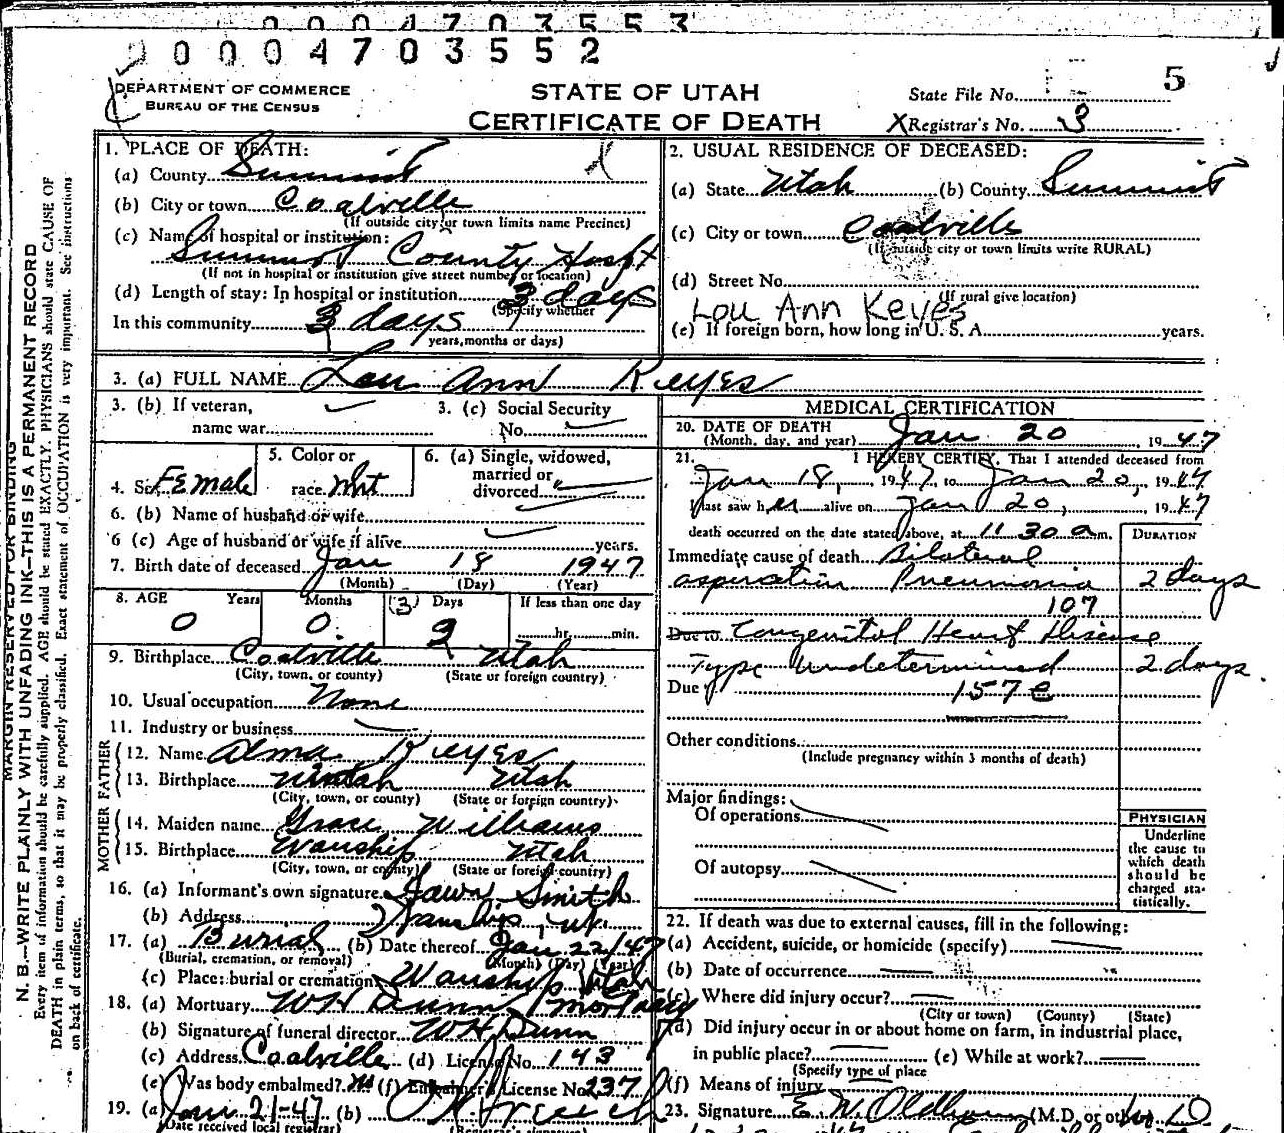 0 0 0 4 7 0 3 5 5 3
0 0 0 0 4 7 0 3 5 5 2
DEPARTMENT OF COMMERCE
BUREAU OF THE CENSUS
STATE OF UTAH
CERTIFICATE OF DEATH
State File No. 5
X Registrar's No. 3
MARGIN RESERVED FOR BINDING
N. B.—WRITE PLAINLY WITH UNFADING INK—THIS IS A PERMANENT RECORD
Every item of information should be carefully supplied. AGE should be stated EXACTLY. PHYSICIANS should state CAUSE OF
DEATH in plain terms, so that it may be properly classified. Exact statement of OCCUPATION is very important. See instructions
on back of certificate.
1. PLACE OF DEATH:
(a) County Summit
(b) City or town Coalville
(If outside city or town limits name Precinct)
(c) Name of hospital or institution:
Summit County Hospt
(If not in hospital or institution give street number or location)
(d) Length of stay: In hospital or institution 3 days
(Specify whether
In this community 3 days
years, months or days)
2. USUAL RESIDENCE OF DECEASED:
(a) State Utah (b) County Summit
(c) City or town Coalville
(If outside city or town limits write RURAL)
(d) Street No.
(If rural give location)
Lou Ann Keyes
(e) If foreign born, how long in U. S. A. years.
3. (a) FULL NAME Lou Ann Keyes
3. (b) If veteran,
name war
3. (c) Social Security
No.
4. Sex Female
5. Color or
race Wht
6. (a) Single, widowed,
married or
divorced
6. (b) Name of husband or wife
6 (c) Age of husband or wife if alive years.
7. Birth date of deceased Jan 18 1947
(Month) (Day) (Year)
8. AGE Years Months (3) Days If less than one day
0 0 hr. min.
9. Birthplace Coalville Utah
(City, town, or county) (State or foreign country)
10. Usual occupation None
11. Industry or business
FATHER
12. Name Alma Keyes
13. Birthplace Utah
(City, town, or county) (State or foreign country)
MOTHER
14. Maiden name Grace Williams
15. Birthplace Wanship Utah
(City, town, or county) (State or foreign country)
16. (a) Informant's own signature Smith
(b) Address Wanship, Ut.
17. (a) Burial (b) Date thereof Jan 22/47
(Burial, cremation, or removal) (Month) (Day) (Year)
(c) Place: burial or cremation Wanship Utah
18. (a) Mortuary W H Dunn Mortuary
(b) Signature of funeral director W H Dunn
(c) Address Coalville (d) License No. 143
(e) Was body embalmed? (f) Embalmer's License No. 237
19. (a) Jan 21-47 (b)
(Date received local registrar) (Registrar's signature)
MEDICAL CERTIFICATION
20. DATE OF DEATH
(Month, day, and year) Jan 20, 1947
21. I HEREBY CERTIFY, That I attended deceased from
Jan 18, 1947, to Jan 20, 1947
I last saw her alive on Jan 20, 1947
death occurred on the date stated above, at 11:30 a m.
DURATION
Immediate cause of death Bilateral
aspiration Pneumonia 2 days
107
Due to Congenital Heart Disease
Type undetermined 2 days.
Due to
157e
Other conditions
(Include pregnancy within 3 months of death)
Major findings:
Of operations
Of autopsy
PHYSICIAN
Underline
the cause to
which death
should be
charged sta-
tistically.
22. If death was due to external causes, fill in the following:
(a) Accident, suicide, or homicide (specify)
(b) Date of occurrence
(c) Where did injury occur?
(City or town) (County) (State)
(d) Did injury occur in or about home on farm, in industrial place,
in public place? (e) While at work?
(Specify type of place
(f) Means of injury
23. Signature E. W. Oldham (M.D. or other)